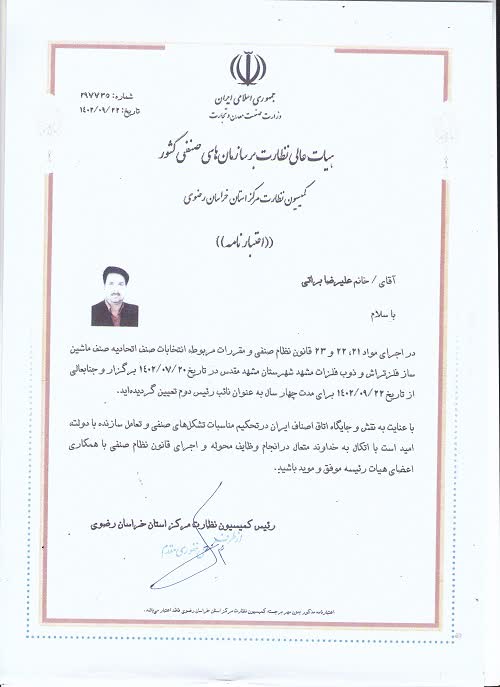 جمهوری اسلامی ایران
وزارت صنعت معدن و تجارت
شماره: ۲۹۷۷۳۵
تاریخ: ۱۴۰۲/۰۹/۲۲
هیات عالی نظارت بر سازمان های صنفی کشور
کمیسیون نظارت مرکز استان خراسان رضوی
((اعتبار نامه))
آقای / خانم علیرضا براتی
با سلام
در اجرای مواد ۲۱، ۲۲ و ۲۳ قانون نظام صنفی و مقررات مربوطه، انتخابات صنف اتحادیه صنف ماشین
ساز فلزتراش و ذوب فلزات مشهد شهرستان مشهد مقدس در تاریخ ۱۴۰۲/۰۷/۲۰ برگزار و جنابعالی
از تاریخ ۱۴۰۲/۰۹/۲۲ برای مدت چهار سال به عنوان نائب رئیس دوم تعیین گردیده‌اید.
با عنایت به نقش و جایگاه اتاق اصناف ایران در تحکیم مناسبات تشکل‌های صنفی و تعامل سازنده با دولت،
امید است با اتکال به خداوند متعال در انجام وظایف محوله و اجرای قانون نظام صنفی با همکاری
اعضای هیات رئیسه موفق و موید باشید.
رئیس کمیسیون نظارت مرکز استان خراسان رضوی
از طرف
اعتبارنامه مذکور بدون مهر برجسته کمیسیون نظارت مرکز استان خراسان رضوی فاقد اعتبار می‌باشد.